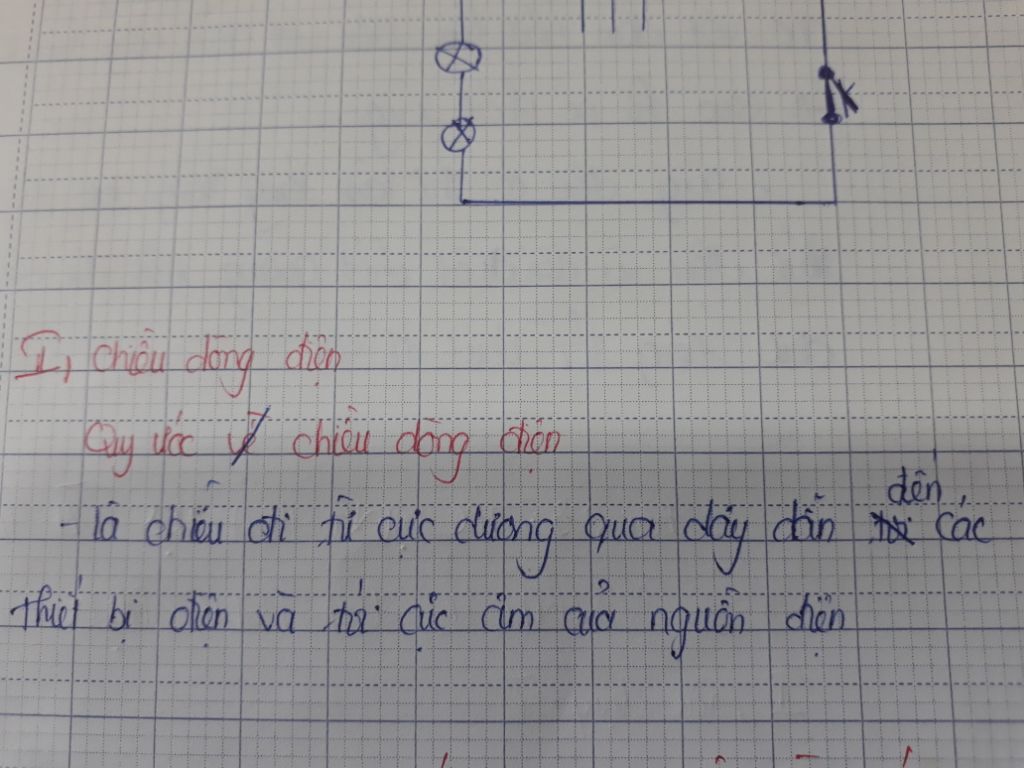 K
I, chiều dòng điện
Quy ước về chiều dòng điện
- là chiều đi từ cực dương qua dây dẫn đến các
thiết bị điện và tới cực âm của nguồn điện